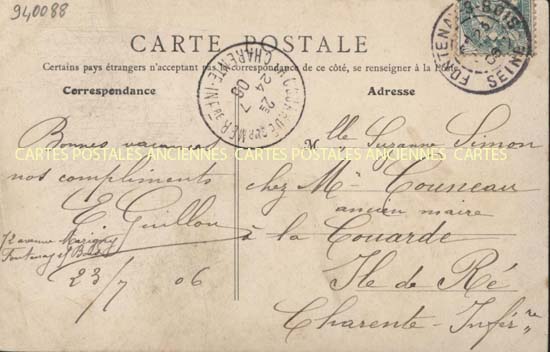 940088
CARTE POSTALE
Certains pays étrangers n'acceptant pas la correspondance de ce côté, se renseigner à la Poste
Correspondance
Adresse
LA COUARDE SUR MER
CHARENTE-INFRE
24 7 06
FONTENAY-S-BOIS
SEINE
Bonnes vacances
nos compliments
E. Guillou
12 avenue Marigny
Fontenay s/ Bois
23/7 06
Mlle Suzanne Simon
chez Mr Couneau
ancien maire
à la Couarde
Ile de Ré
Charente-Inférre
CARTES POSTALES ANCIENNES CARTES POSTALES ANCIENNES CARTES POSTALES ANCIENNES